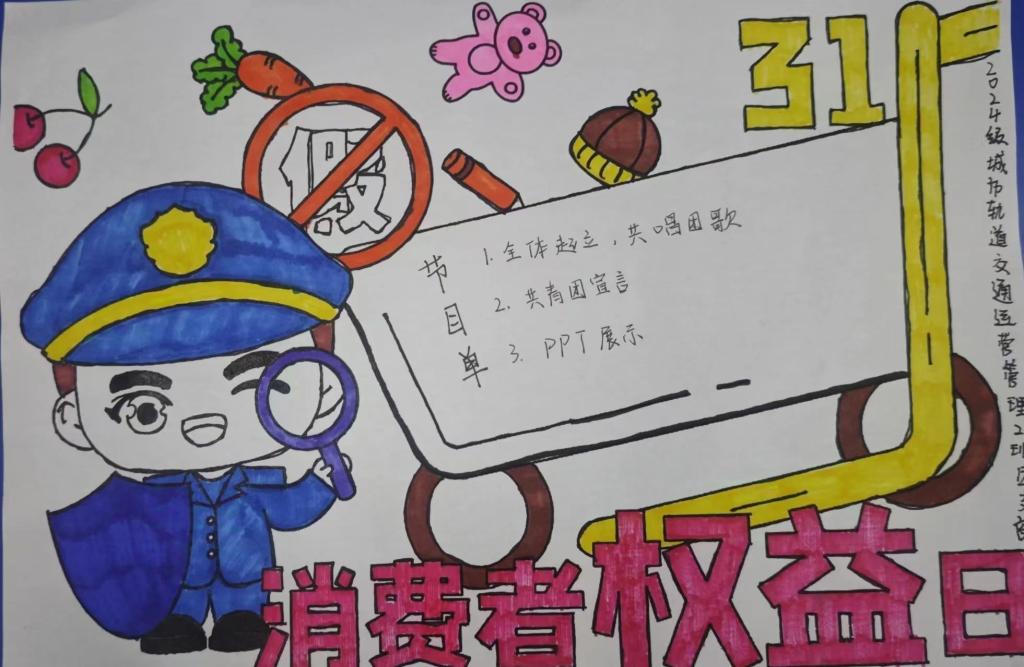 31
假
节目单
1. 全体起立，共唱团歌
2. 共青团宣言
3. PPT 展示
2024级城市轨道交通运营管理2班
消费者权益日